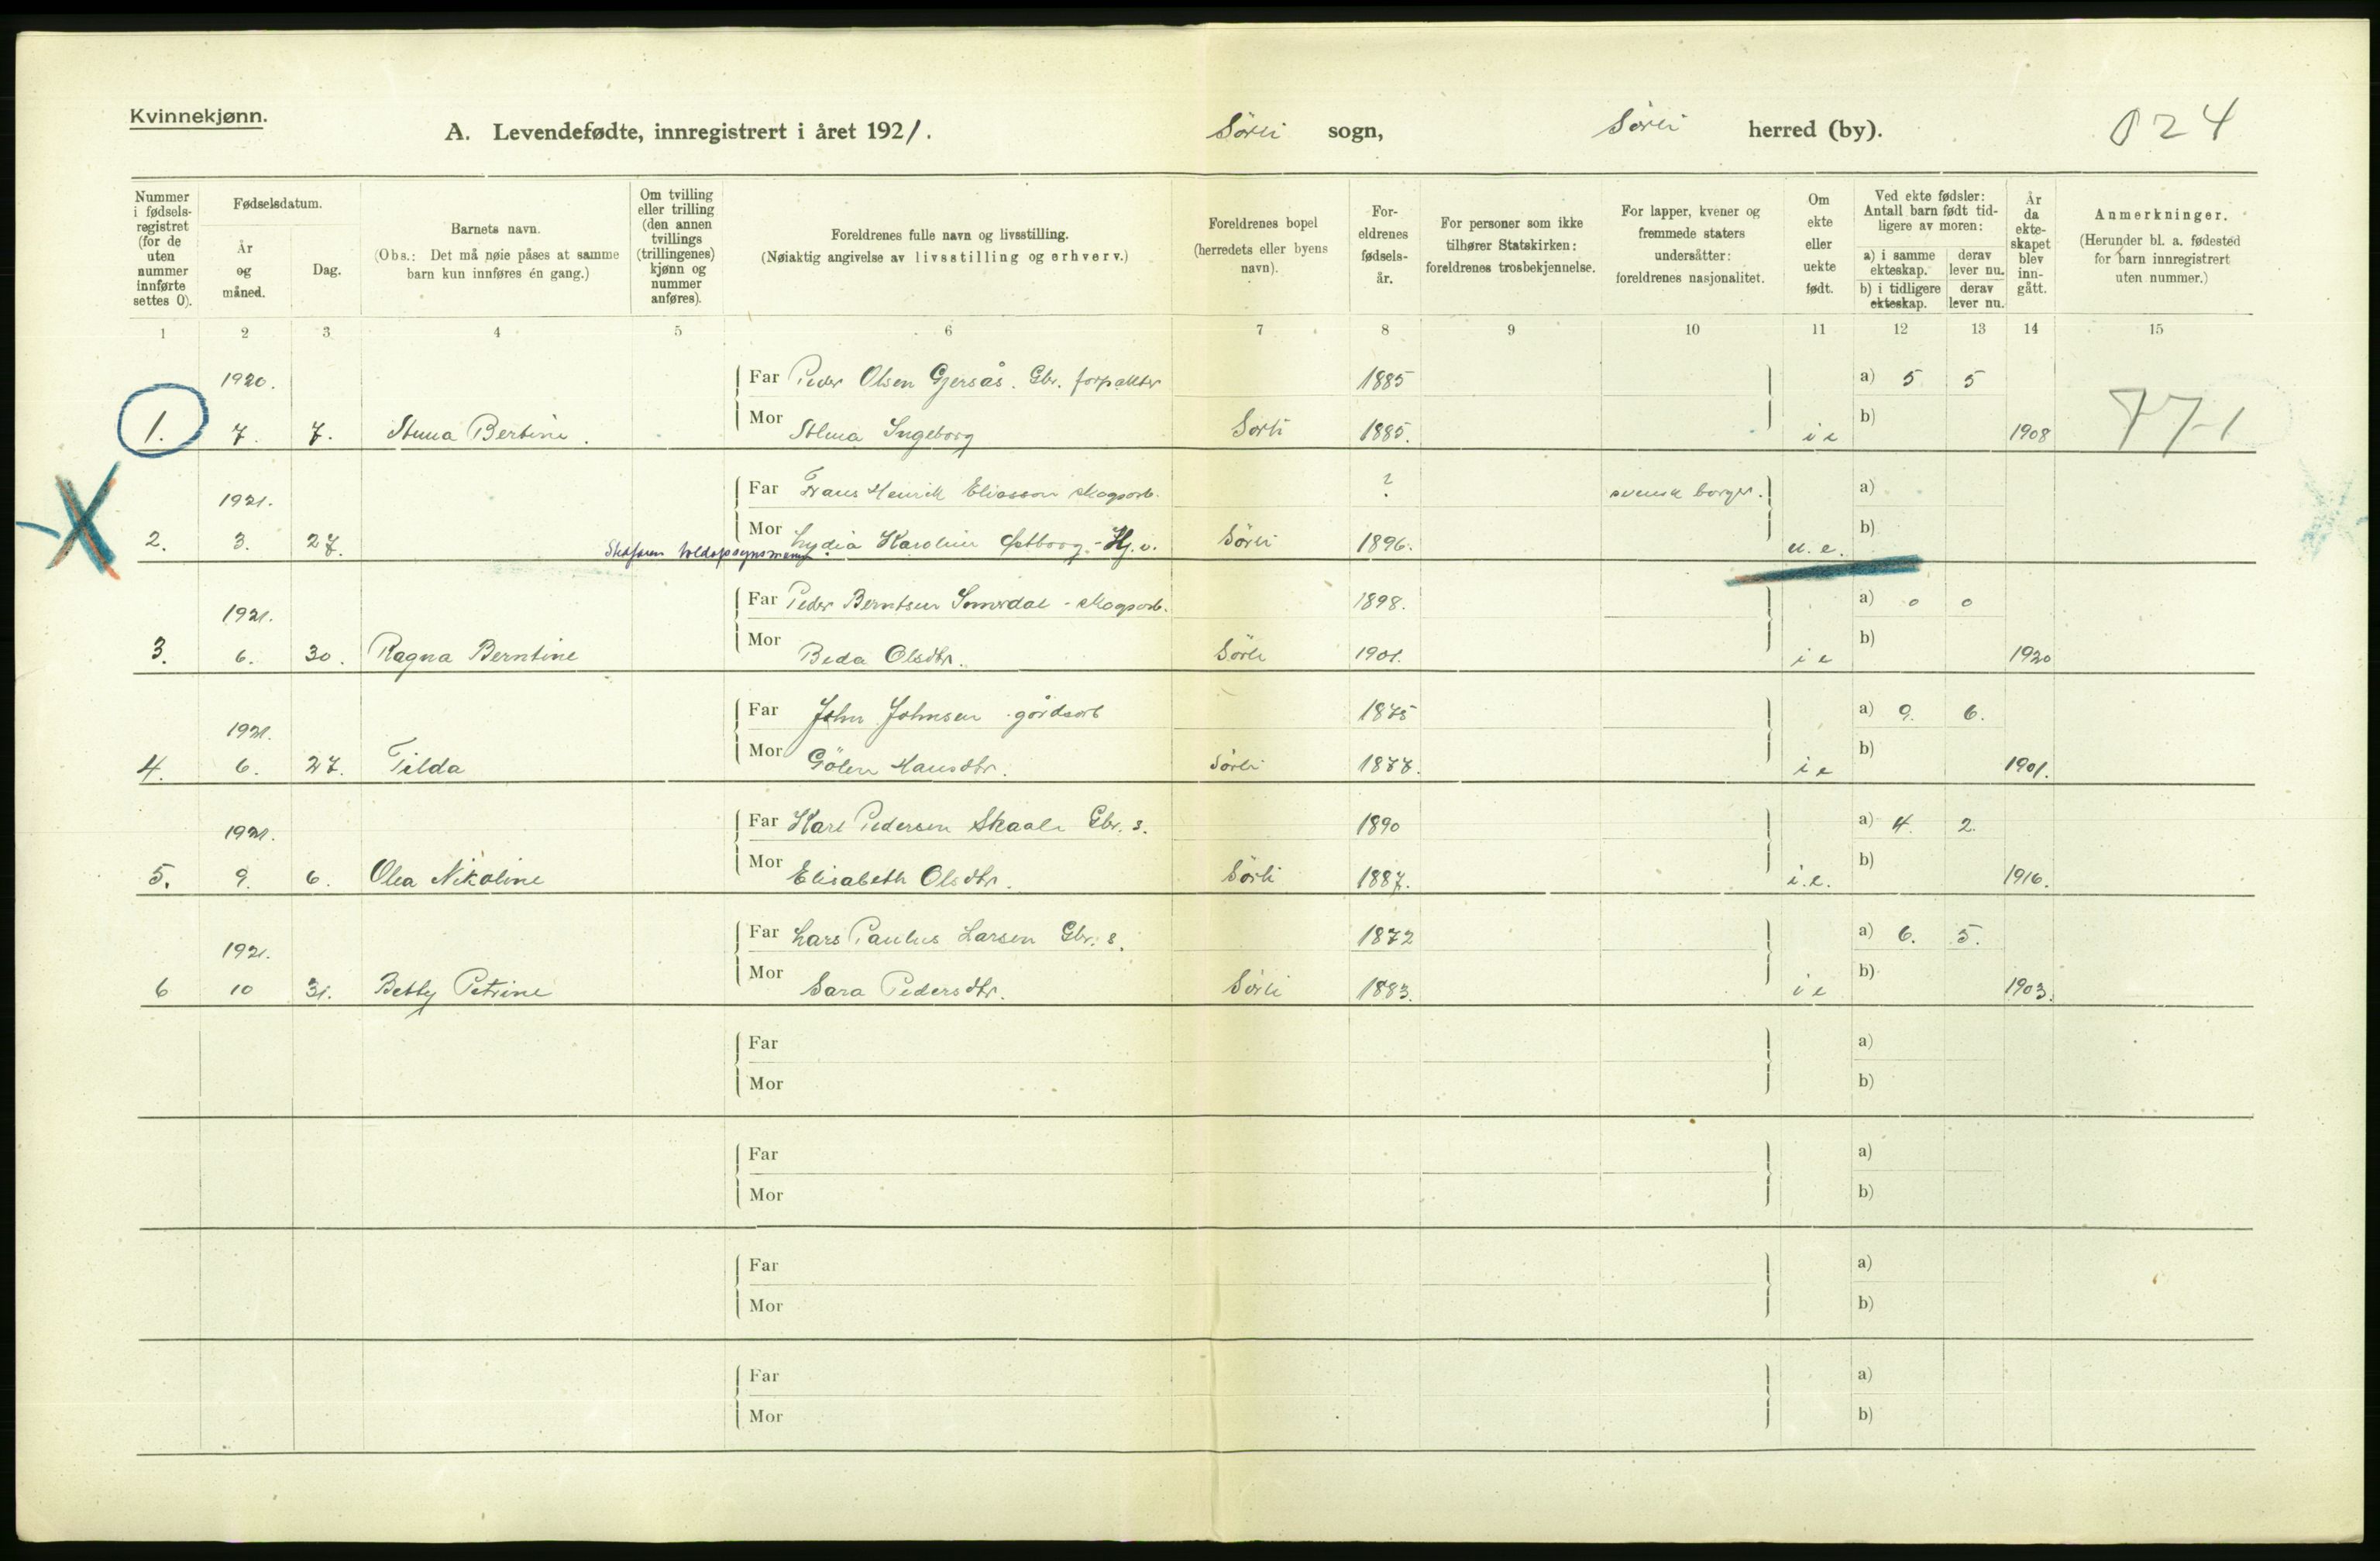 Kvinnekjønn.
A. Levendefødte, innregistrert i året 1921.
Sörli sogn,
Sörli herred (by).
024
Nummer i fødselsregistret (for de uten nummer innførte settes 0).
Fødselsdatum.
År og måned.
Dag.
Barnets navn.
(Obs.: Det må nøie påses at samme barn kun innføres én gang.)
Om tvilling eller trilling (den annen tvillings (trillingenes) kjønn og nummer anføres).
Foreldrenes fulle navn og livsstilling.
(Nøiaktig angivelse av livsstilling og erhverv.)
Foreldrenes bopel (herredets eller byens navn).
Foreldrenes fødselsår.
For personer som ikke tilhører Statskirken: foreldrenes trosbekjennelse.
For lapper, kvener og fremmede staters undersåtter: foreldrenes nasjonalitet.
Om ekte eller uekte født.
Ved ekte fødsler: Antall barn født tidligere av moren:
a) i samme ekteskap. derav lever nu.
b) i tidligere ekteskap. derav lever nu.
År da ekteskapet blev inngått.
Anmerkninger.
(Herunder bl. a. fødested for barn innregistrert uten nummer.)
1 2 3 4 5 6 7 8 9 10 11 12 13 14 15
1920. Far Peder Olsen Gjersås. Gbr. forpakter 1885 a) 5 5
1. 7. 7. Bertine. Mor Ingeborg Sörli 1885. i e b) 1908 77-1
1921. Far Frans Henrik Eliasson skogsarb. ? svensk borger. a)
2. 3. 27. Mor Lydia Karoline Østborg - Hj. v. Sörli 1896. u. e. b)
1921. Far Peder Berntsen - skogsarb. 1898. a) 0 0
3. 6. 30. Ragna Berntine Mor Beda Olsdtr. Sörli 1901. i e b) 1920
1921. Far John Johnsen gårdsarb 1875 a) 9. 6.
4. 6. 27. Tilda Mor Gölin Hansdtr. Sörli 1877. i e b) 1901.
1921. Far Karl Pedersen Skaale Gbr. s. 1890 a) 4. 2.
5. 9. 6. Olea Nikoline Mor Elisabeth Olsdtr. Sörli 1887. i. e. b) 1916.
1921. Far Lars Paulus Larsen Gbr. s. 1872 a) 6. 5.
6 10 31. Betty Petrine Mor Sara Pedersdtr. Sörli 1883. i e b) 1903.
Far a)
Mor b)
Far a)
Mor b)
Far a)
Mor b)
Far a)
Mor b)